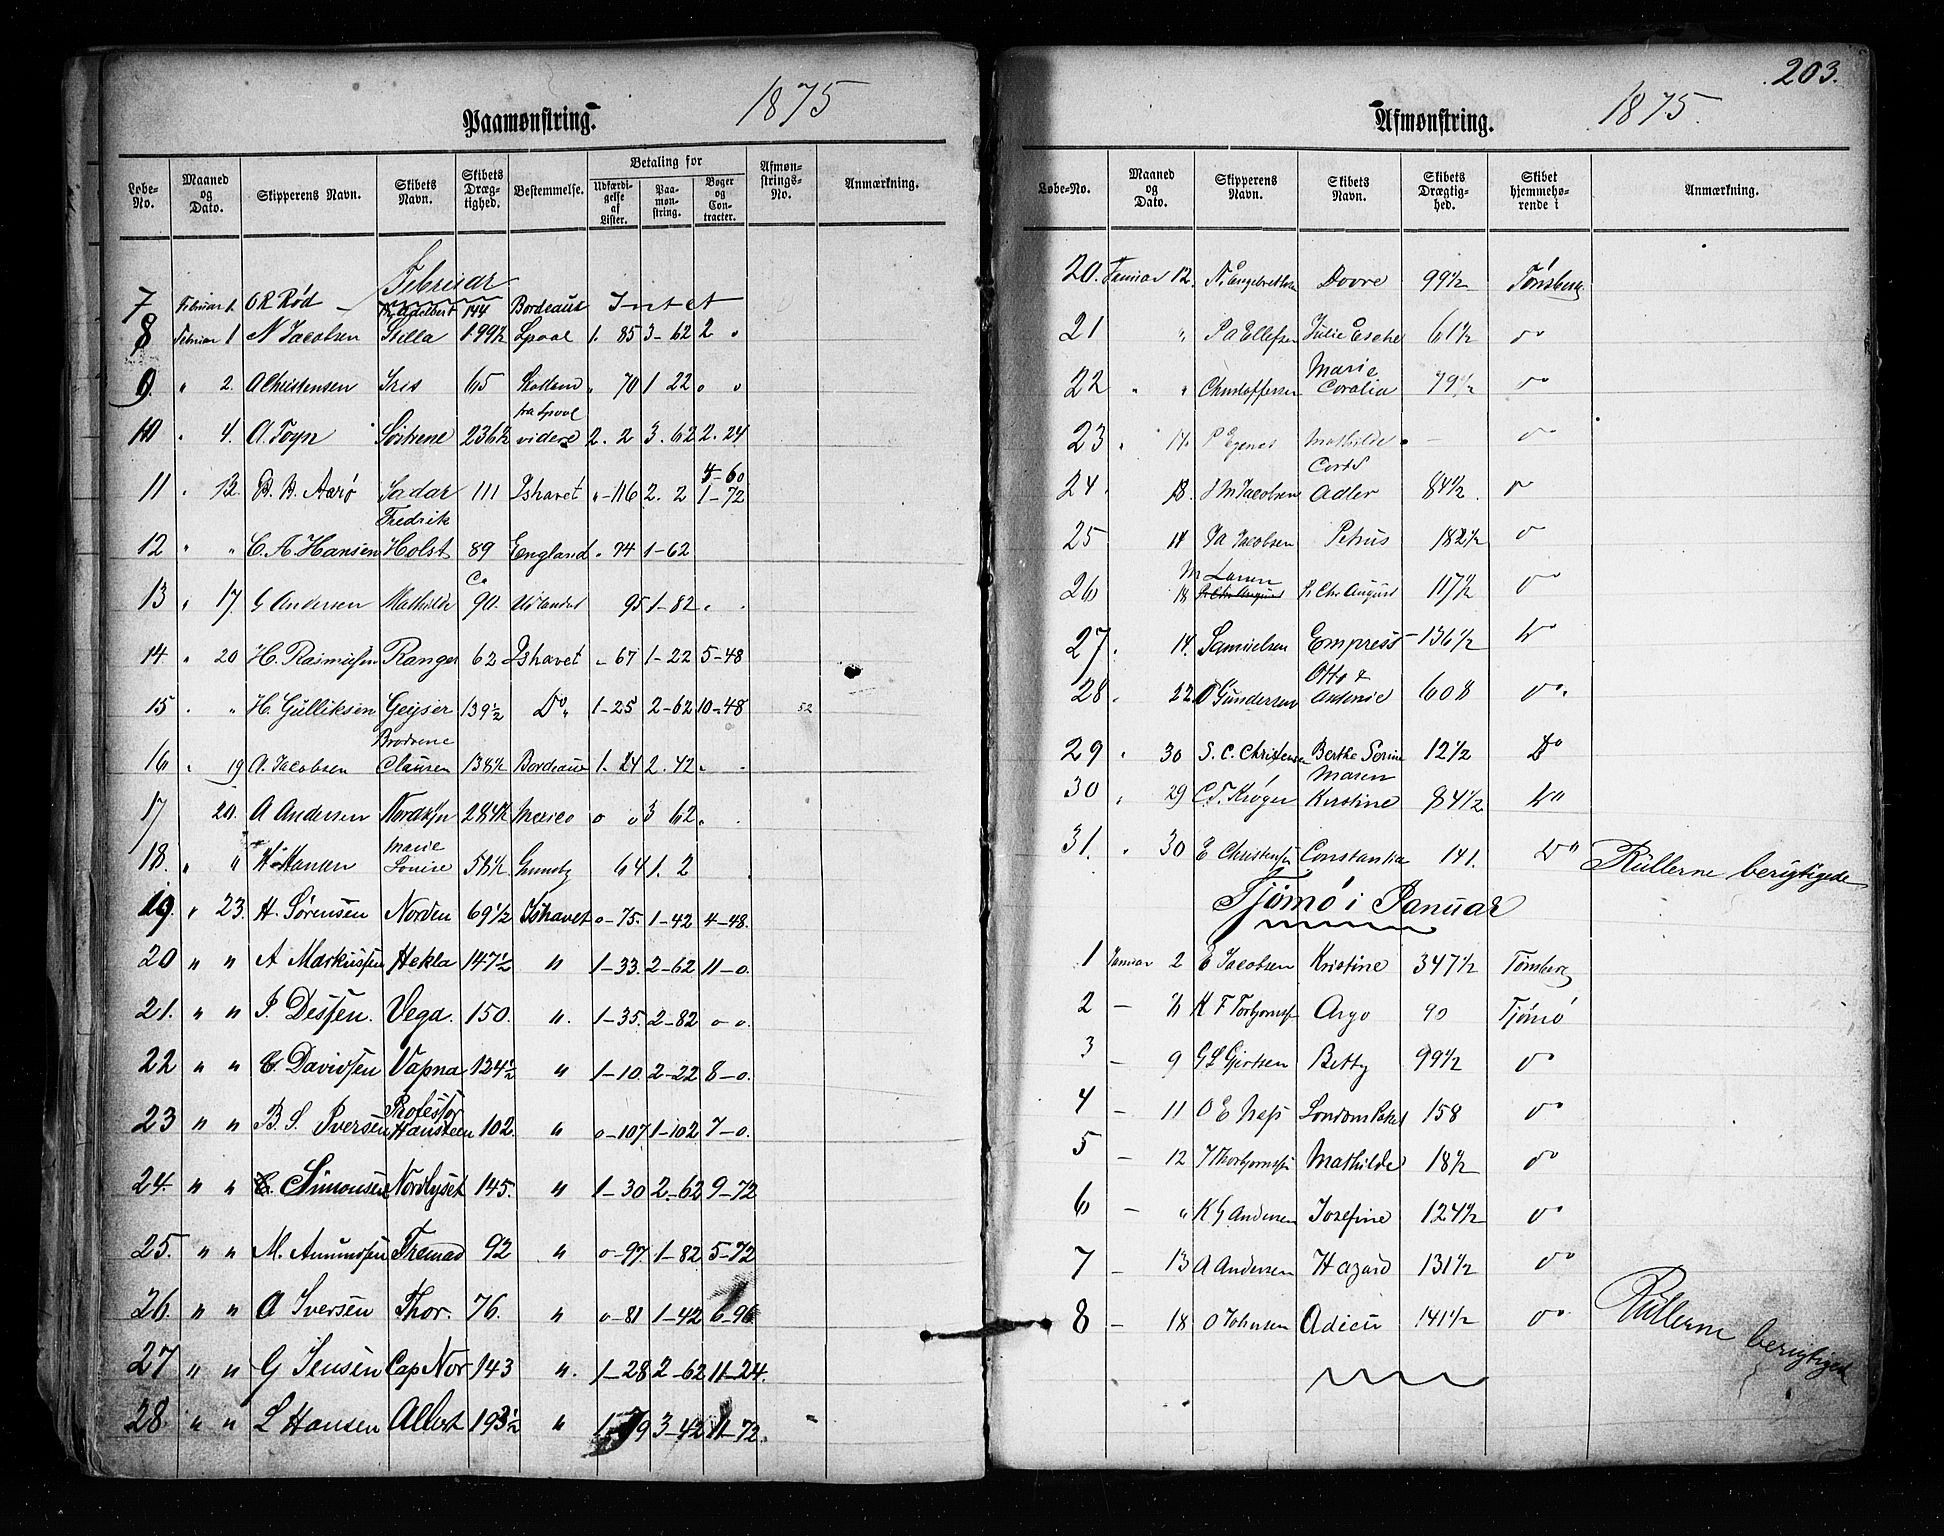 Paamønstring. 1875
Løbe-No. Maaned og Dato. Skipperens Navn. Skibets Navn. Skibets Dræg-tighed. Bestemmelse. Betaling for Udfærdi-gelse af Lister. Paa-møn-string. Bøger og Con-tracter. Afmøn-strings-No. Anmærkning.
Februar
7 Februar 1. O R Rød Adelbert 144 Bordeaux Intet
8 Februar 1 N Jacobsen Stella 199½ Lpool 1. 85 3-62 2 "
9. " 2. A Christensen Iris 65 " 70 1 22 " "
fra Lpool
10 " 4. A. Foyn Søstrene 236½ videre 2. 2 3. 62 2. 24
4-60
11 " 12. B. B. Aarø Jadar 111 Ishavet "-116 2. 2 1-72
Fredrik
12 " " C. A. Hansen Holst 89 England " 74 1-62
Ca
13 " 17 G Andersen Mathilde 90. Udlandet 95 1-82 " "
14 " 20 H. Rasmussen Ranger 62 Ishavet "-67 1-22 5-48
15 " " H. Gulliksen Geyser 139½ Do " 1-25 2-62 10-48 52
Brødrene
16 " 19 A. Jacobsen Clausen 138½ Bordeaux 1. 24 2. 42 " "
17 20. A Andersen Nordkyn 284½ Mexico o o 3 62 " "
Marie
18. " " H Hansen Louise 58½ Grimsby 64 1. 2
19. " 23. H. Sørensen Norden 69½ Ishavet o-75. 1-42 4-48.
20 " " A Markussen Hekla 147½ " 1-33. 2-62 11-o.
21. " " J. Dessen. Vega. 150. ". 1-35. 2-82 o-o.
22 " " C. Davidsen Vapna 124½ " 1-10. 2-22 8-o.
Professor
23 " " B. S. Iversen Hansteen 102. " o-107 1-102 7-o.
24. " " C. Simonsen Nordlyset 145. " 1-30 2-62 9-72
25. " " M. Amundsen Fremad 92 " o-97. 1-82 5-72
26. " " A Iversen Thor. 76. " o-81 1-42 6-96
27 " " G Jensen Cap Nor 143 ". 1-28 2-62 11-24.
28. " " L Hansen Albert 193½ " 3-42 11-72.
203.
Afmønstring. 1875.
Løbe-No. Maaned og Dato. Skipperens Navn. Skibets Navn. Skibets Drægtig-hed. Skibet hjemmehø-rende i Anmærkning.
20. Januar 12. N. Engebretsen Dovre 99½ Tønsberg
21 " P A Ellefsen Julie Esche 61½ Do
Marie
22 " " Christoffersen Coralia 79½ Do
23 " 14. P Egenes Mathilde " - Do
Cort
24. 18. J M Jacobsen Adler 84½ Do
25 14 Ja Jacobsen Petrus 182½ Do
M Larsen
26 18 Pr Chr August 117½ Do
27. " 14. Samuelsen Empress 136½ Do
Otto &
28. " 22. O Gundersen Antonie 608 Do.
29 " 30 S. C. Christensen Berthe Sorine 12½ Do
Maren
30 " 29 C. F. Krøger Kirstine 84½ Do
31. " 30 E Christensen Constantia 141. Do Rullerne berigtigede
Tjømø i Januar
1 Januar 2 E Jacobsen Kristine 347½ Tønsberg
2 - K F Torbjørnsen Argo 90 Tjømø
3 - 9 G L Gjertsen Betty 99½ Do
4 - 11 O E Næss London Paket 158 Do
5 - 12 J Thorbjørnsen Mathilde 18½ Do
6 - " K G Andersen Josefine 124½ Do
7 - 13 A Andersen Hazard 131½ Do
8 - 18 O Johnsen Adieu 141½ Do Rullerne berigtiget